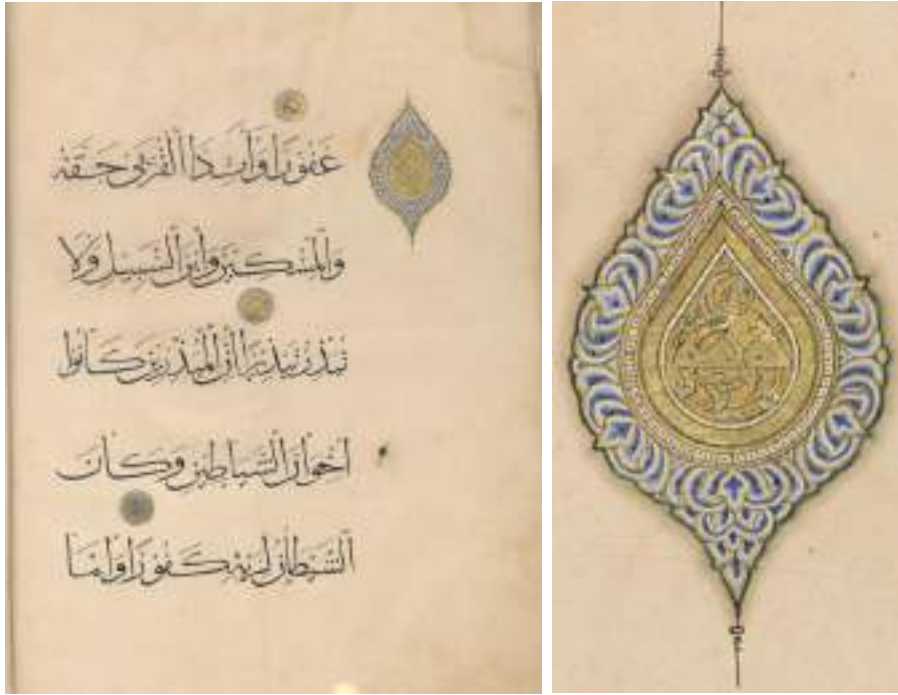 غفورا وآت ذا القربى حقه
والمسكين وابن السبيل ولا
تبذر تبذيرا إن المبذرين كانوا
اخوان الشياطين وكان
الشيطان لربه كفورا واما